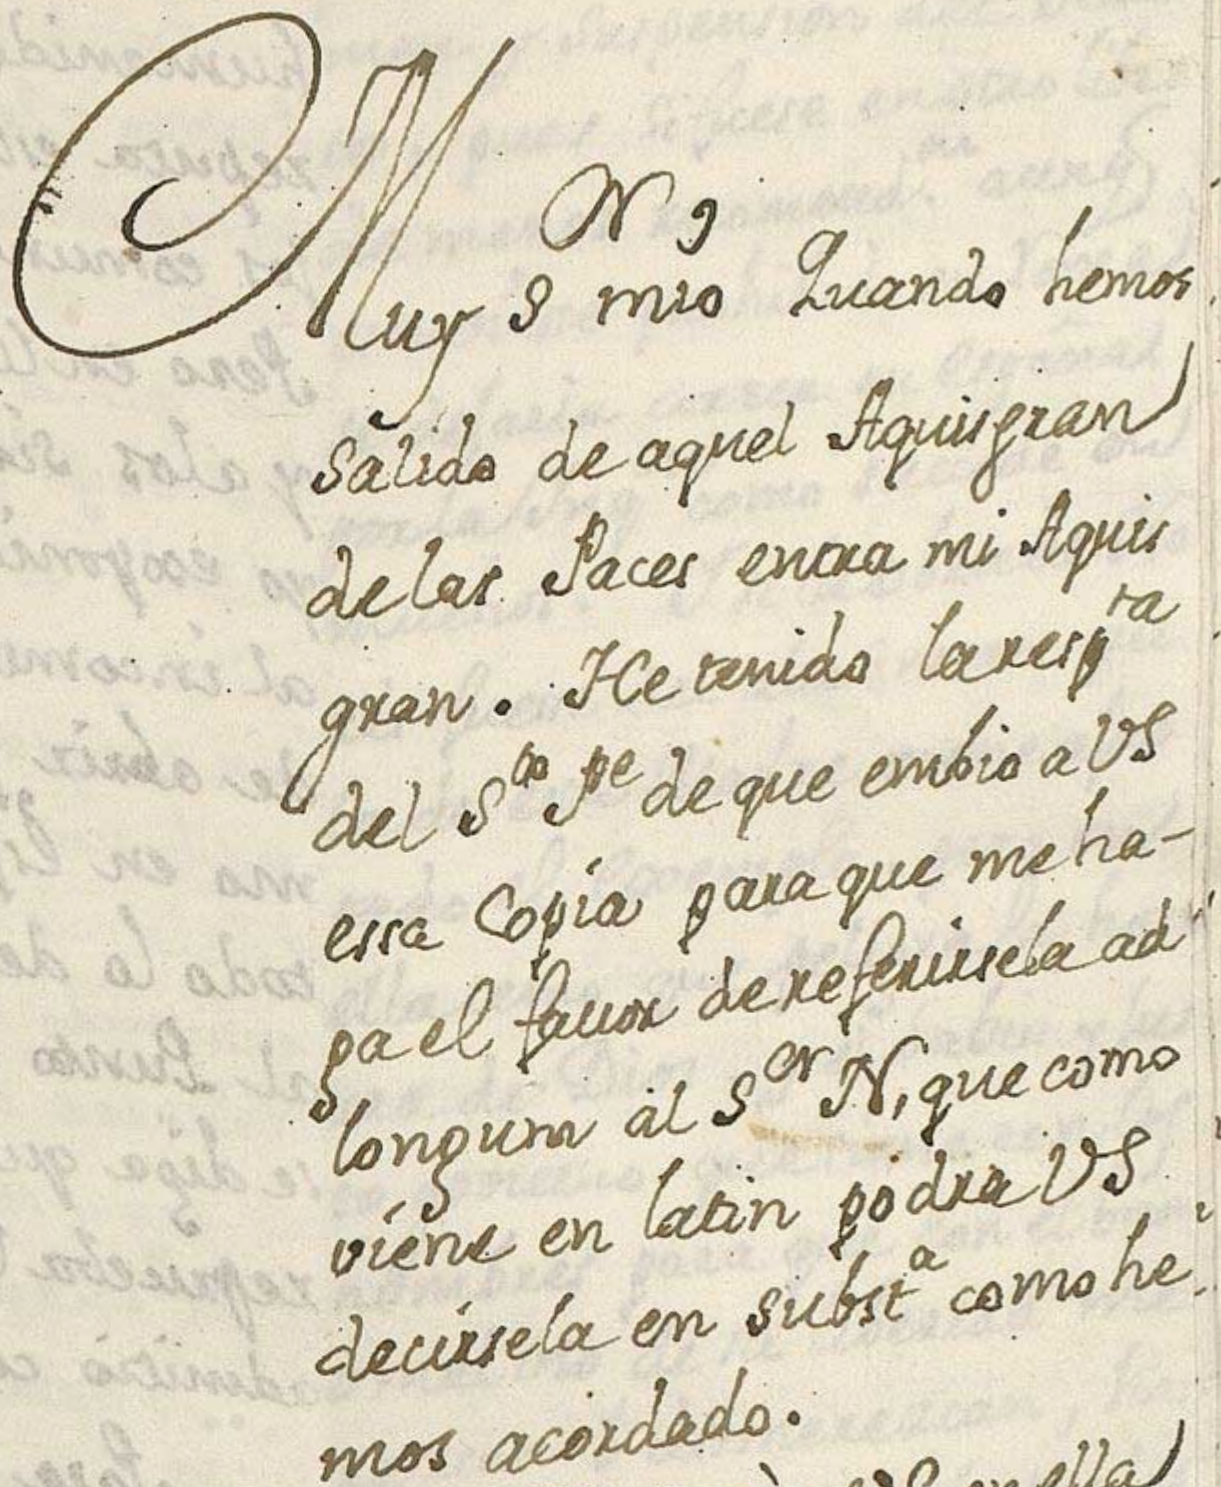 N 9
Muy S mio Quando hemos
salido de aquel Aquisgran
de las Paces entra mi Aquis
gran. He tenido la resp.ta
del S.to P.e de que embio a VS
essa Copia para que me ha-
ga el favor de referirsela ad
longum al S.or N, que como
viene en latin podra VS
decirsela en subst.a como he
mos acordado.
VS en ella